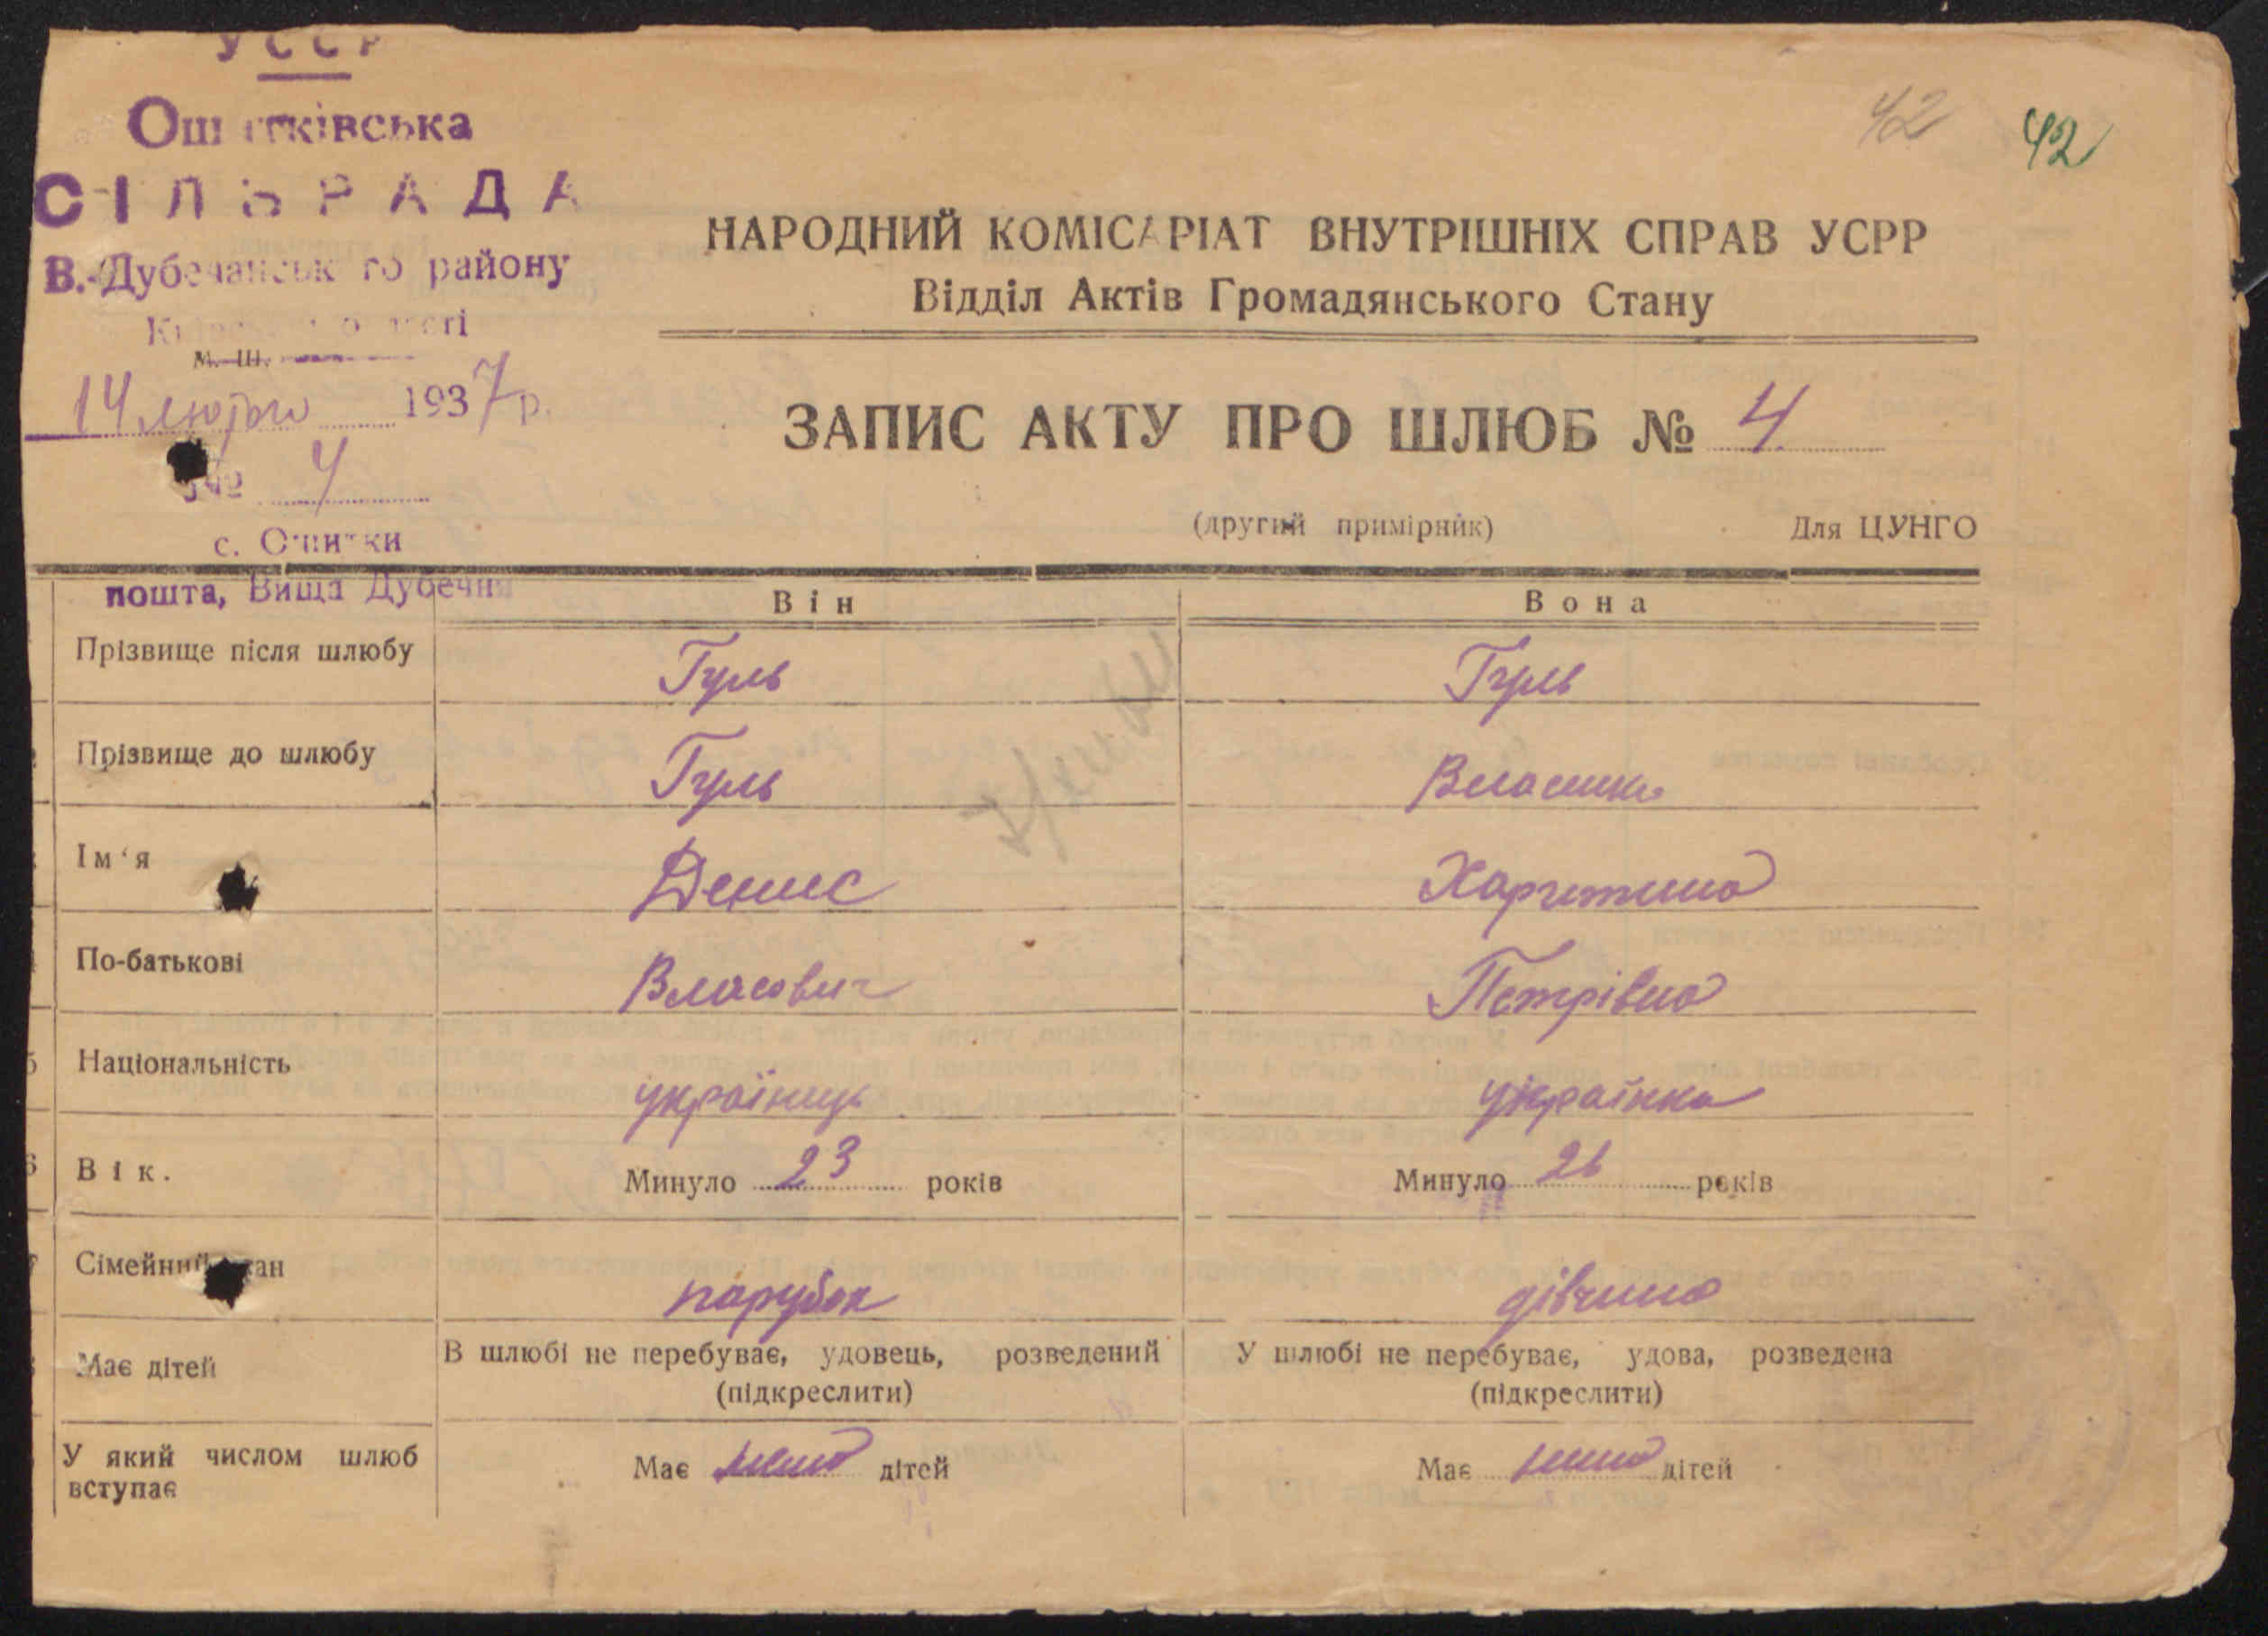 УССР
42
42
Ошитківська
СІЛЬРАДА
В.-Дубечанського району
Київської області
м. ш.
14 лютого 1937 р.
№ 4
с. Ошитки
пошта, Вища Дубечня
НАРОДНИЙ КОМІСАРІАТ ВНУТРІШНІХ СПРАВ УСРР
Відділ Актів Громадянського Стану
ЗАПИС АКТУ ПРО ШЛЮБ № 4
(другий примірник) Для ЦУНГО
Він Вона
Прізвище після шлюбу Гуль Гуль
Прізвище до шлюбу Гуль Власенко
Ім‘я Денис Харитина
По-батькові Власович Петрівна
5 Національність українець українка
6 Вік. Минуло 23 років Минуло 26 років
Сімейний стан парубок дівчина
Має дітей В шлюбі не перебуває, удовець, розведений У шлюбі не перебуває, удова, розведена
(підкреслити) (підкреслити)
У який числом шлюб вступає Має нема дітей Має нема дітей